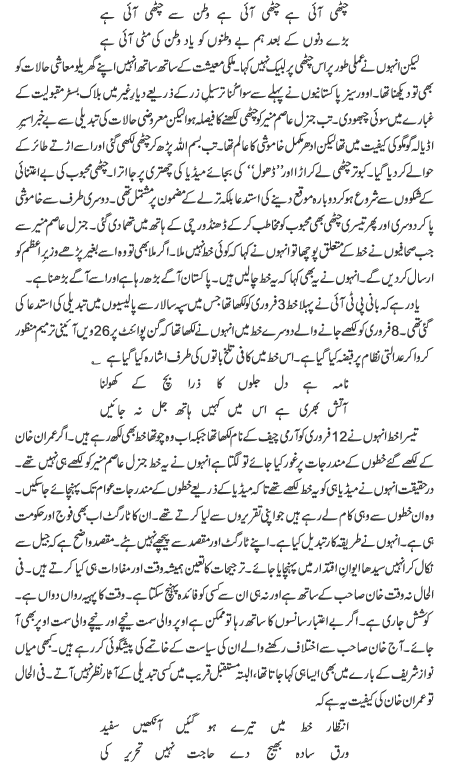 چٹھی آئی ہے چٹھی آئی ہے وطن سے چٹھی آئی ہے
بڑے دنوں کے بعد ہم بے وطنوں کو یاد وطن کی مٹی آئی ہے
لیکن انہوں نے عملی طور پر اس چٹھی پر لبیک نہیں کہا۔ ملکی معیشت کے ساتھ ساتھ انہیں اپنے گھریلو معاشی حالات کو
بھی تو دیکھنا تھا۔ اوورسیز پاکستانیوں نے پہلے سے سوا گنا ترسیل زر کے ذریعے دیار غیر میں بلاک بسٹر مقبولیت کے
غبارے میں سوئی چبھودی۔ تب جنرل عاصم منیر کو چٹھی لکھنے کا فیصلہ ہوا لیکن معروضی حالات کی تبدیلی سے بے خبر اسیر
اڈیالہ گومگو کی کیفیت میں تھا لیکن ادھر مکمل خاموشی کا عالم تھا۔ تب بسم اللہ پڑھ کر چٹھی لکھی گئی اور اسے اڑتے طائر کے
حوالے کر دیا گیا۔ کبوتر چٹھی لے کر اڑا اور ’’ڈھول‘‘ کی بجائے میڈیا کی چھتری پر جا اترا۔ چٹھی محبوب کی بے اعتنائی
کے شکووں سے شروع ہو کر دوبارہ موقع دینے کی استدعا بلکہ ترلے کے مضمون پر مشتمل تھی۔ دوسری طرف سے خاموشی
پا کر دوسری اور پھر تیسری چٹھی بھی محبوب کو مخاطب کر کے ڈھنڈورچی کے ہاتھ میں تھما دی گئی۔ جنرل عاصم منیر سے
جب صحافیوں نے خط کے متعلق پوچھا تو انہوں نے کہا کہ کوئی خط نہیں ملا۔ اگر ملا بھی تو وہ اسے بغیر پڑھے وزیراعظم کو
ارسال کر دیں گے۔ انہوں نے یہ بھی کہا کہ یہ خط چالیں ہیں۔ پاکستان آگے بڑھ رہا ہے اور اسے آگے بڑھنا ہے۔
یاد رہے کہ بانی پی ٹی آئی نے پہلا خط 3 فروری کو لکھا تھا جس میں سپہ سالار سے پالیسیوں میں تبدیلی کی استدعا کی
گئی تھی۔ 8 فروری کو لکھے جانے والے دوسرے خط میں انہوں نے لکھا تھا کہ گن پوائنٹ پر 26 ویں آئینی ترمیم منظور
کروا کر عدالتی نظام پر قبضہ کیا گیا ہے۔ اس خط میں کافی تلخ باتوں کی طرف اشارہ کیا گیا ہے
نامہ ہے دل جلوں کا ذرا بچ کے کھولنا
آتش بھری ہے اس میں کہیں ہاتھ جل نہ جائیں
تیسرا خط انہوں نے 12 فروری کو آرمی چیف کے نام لکھا تھا جبکہ اب وہ چوتھا خط بھی لکھ رہے ہیں۔ اگر عمران خان
کے لکھے گئے خطوں کے مندرجات پر غور کیا جائے تو لگتا ہے انہوں نے یہ خط جنرل عاصم منیر کو لکھے ہی نہیں تھے۔
درحقیقت انہوں نے میڈیا ہی کو یہ خط لکھے تھے تاکہ میڈیا کے ذریعے خطوں کے مندرجات عوام تک پہنچائے جاسکیں۔
وہ ان خطوں سے وہی کام لے رہے ہیں جو اپنی تقریروں سے لیا کرتے تھے۔ ان کا ٹارگٹ اب بھی فوج اور حکومت
ہی ہے۔ انہوں نے طریقہ کار تبدیل کیا ہے۔ اپنے ٹارگٹ اور مقصد سے پیچھے نہیں ہٹے۔ مقصد واضح ہے کہ جیل سے
نکال کر انہیں سیدھا ایوان اقتدار میں پہنچایا جائے۔ ترجیحات کا تعین ہمیشہ وقت اور مفادات ہی کیا کرتے ہیں۔ فی
الحال نہ وقت خان صاحب کے ساتھ ہے اور نہ ہی ان سے کسی کو فائدہ پہنچ سکتا ہے۔ وقت کا پہیہ رواں دواں ہے۔
کوشش جاری ہے۔ اگر بے اعتبار سانسوں کا ساتھ رہا تو ممکن ہے اوپر والی سمت نیچے اور نیچے والی سمت اوپر بھی آ
جائے۔ آج خان صاحب سے اختلاف رکھنے والے ان کی سیاست کے خاتمے کی پیشگوئی کر رہے ہیں۔ کبھی میاں
نواز شریف کے بارے میں بھی ایسا ہی کہا جاتا تھا، البتہ مستقبل قریب میں کسی تبدیلی کے آثار نظر نہیں آتے۔ فی الحال
تو عمران خان کی کیفیت یہ ہے کہ
انتظار خط میں تیرے ہو گئیں آنکھیں سفید
ورق سادہ بھیج دے حاجت نہیں تحریر کی